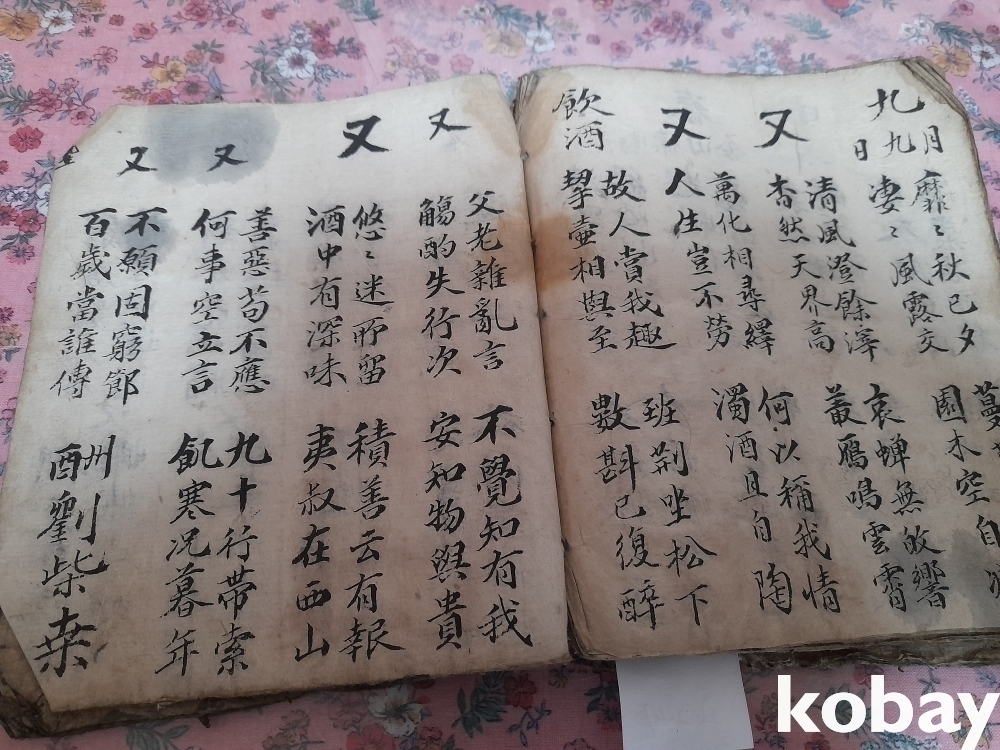 九月九日
靡〻秋已夕 蔓
凄〻風露交 園木空自
又
清風澄餘滓 哀蟬無故響
杳然天界高 叢鴈鳴雲霄
又
萬化相尋繹 何以稱我情
人生豈不勞 濁酒且自陶
飲酒
故人賞我趣 班荆坐松下
挈壷相與至 數斟已復醉
又
父老雜亂言 不覺知有我
觴酌失行次 安知物與貴
又
悠〻迷所留 積善云有報
酒中有深味 夷叔在西山
又
善惡苟不應 九十行帶索
何事空立言 飢寒况暮年
又
不願固窮節
百歲當誰傳
酬劉柴桒
kobay